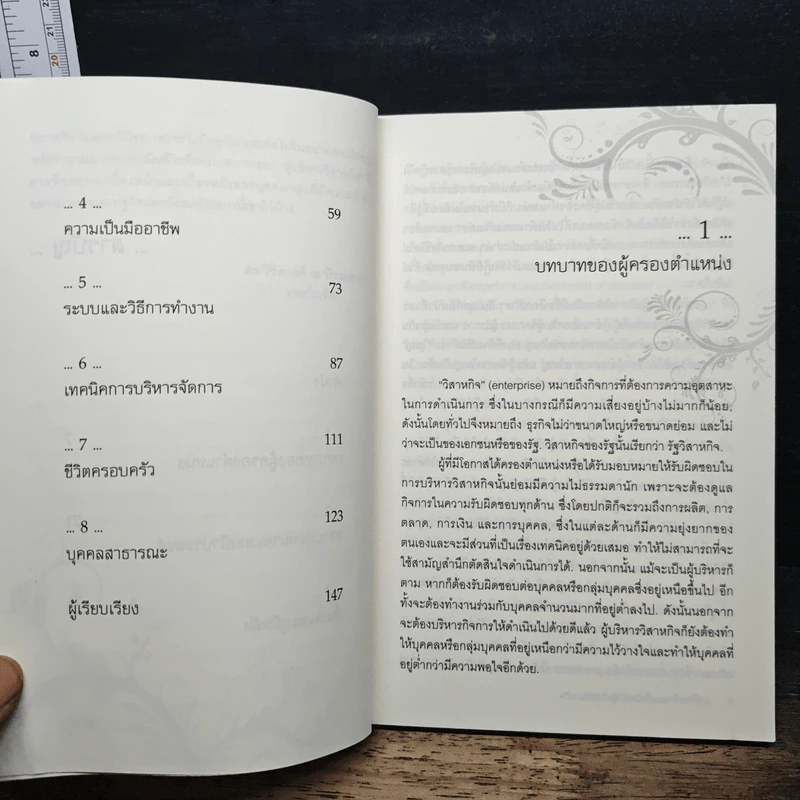 8
20
21
... 4 ...
59
ความเป็นมืออาชีพ
... 5 ...
73
ระบบและวิธีการทำงาน
... 6 ...
87
เทคนิคการบริหารจัดการ
... 7 ...
111
ชีวิตครอบครัว
... 8 ...
123
บุคคลสาธารณะ
147
ผู้เรียบเรียง
... 1 ...
บทบาทของผู้ครองตำแหน่ง
"วิสาหกิจ" (enterprise) หมายถึงกิจการที่ต้องการความอุตสาหะ
ในการดำเนินการ ซึ่งในบางกรณีก็มีความเสี่ยงอยู่บ้างไม่มากก็น้อย,
ดังนั้นโดยทั่วไปจึงหมายถึง ธุรกิจไม่ว่าขนาดใหญ่หรือขนาดย่อม และไม่
ว่าจะเป็นของเอกชนหรือของรัฐ. วิสาหกิจของรัฐนั้นเรียกว่า รัฐวิสาหกิจ.
ผู้ที่มีโอกาสได้ครองตำแหน่งหรือได้รับมอบหมายให้รับผิดชอบใน
การบริหารวิสาหกิจนั้นย่อมมีความไม่ธรรมดานัก เพราะจะต้องดูแล
กิจการในความรับผิดชอบทุกด้าน ซึ่งโดยปกติก็จะรวมถึงการผลิต, การ
ตลาด, การเงิน และการบุคคล, ซึ่งในแต่ละด้านก็มีความยุ่งยากของ
ตนเองและจะมีส่วนที่เป็นเรื่องเทคนิคอยู่ด้วยเสมอ ทำให้ไม่สามารถที่จะ
ใช้สามัญสำนึกตัดสินใจดำเนินการได้. นอกจากนั้น แม้จะเป็นผู้บริหารก็
ตาม หากก็ต้องรับผิดชอบต่อบุคคลหรือกลุ่มบุคคลซึ่งอยู่เหนือขึ้นไป อีก
ทั้งจะต้องทำงานร่วมกับบุคคลจำนวนมากที่อยู่ต่ำลงไป. ดังนั้นนอกจาก
จะต้องบริหารกิจการให้ดำเนินไปด้วยดีแล้ว ผู้บริหารวิสาหกิจก็ยังต้องทำ
ให้บุคคลหรือกลุ่มบุคคลที่อยู่เหนือกว่ามีความไว้วางใจและทำให้บุคคลที่
อยู่ต่ำกว่ามีความพอใจอีกด้วย.